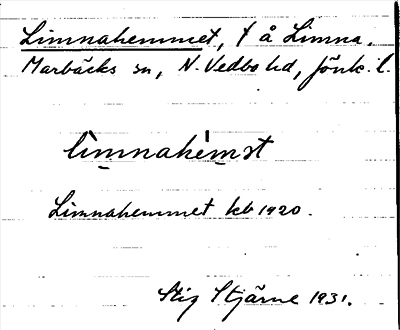 Limnahemmet, t å Limna.
Marbäcks sn, N. Vedbo hd, Jönk. l.
lìmnahèmst
Limnahemmet kb 1920.
Stig Stjärne 1931.